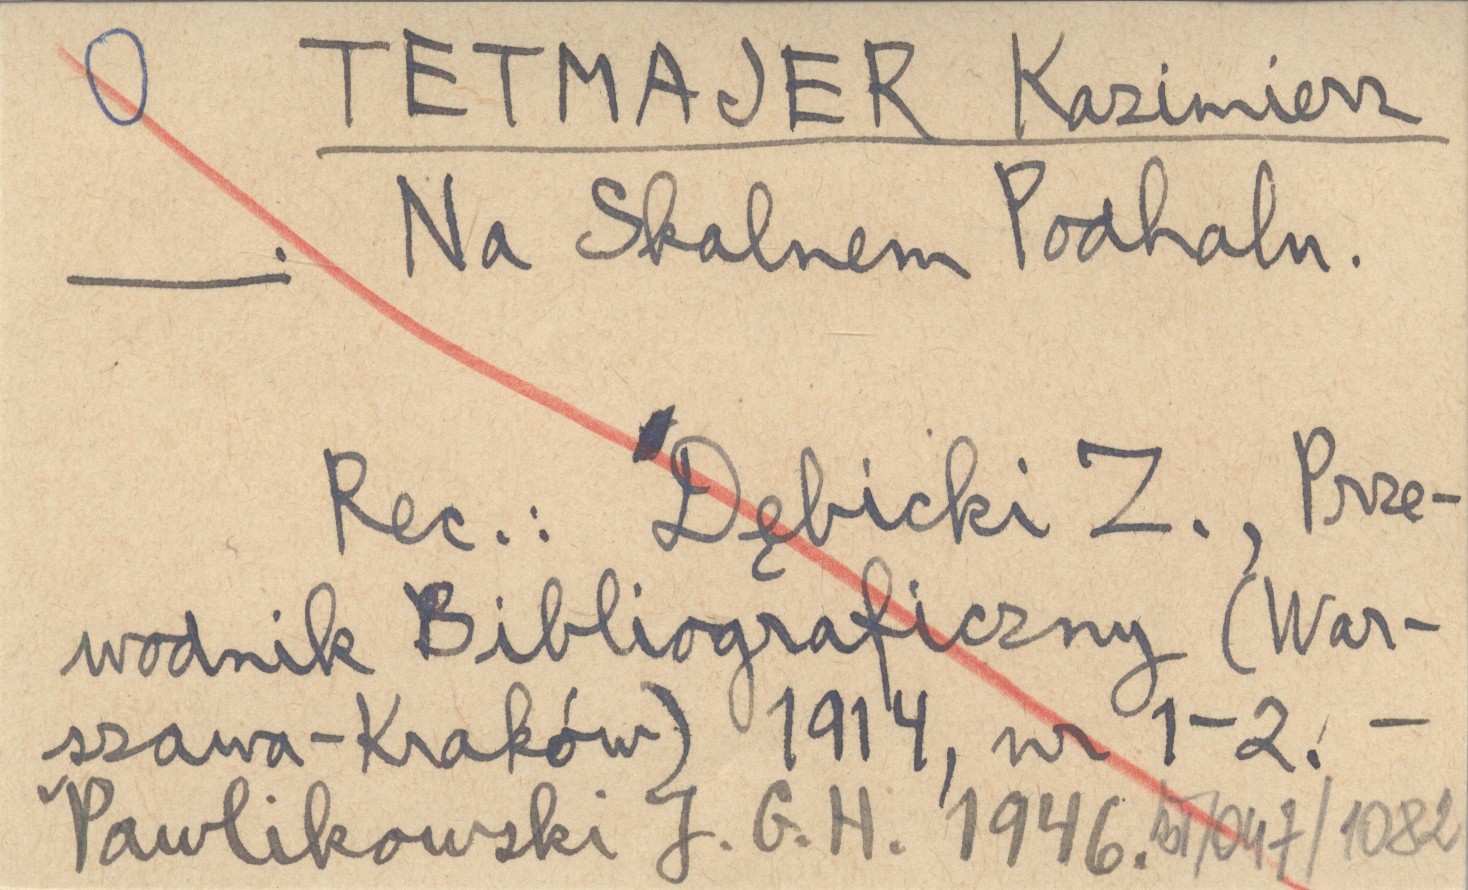 TETMAJER Kazimierz
———. Na Skalnem Podhalu.
Rec.: Dębicki Z., Prze-
wodnik Bibliograficzny (War-
szawa-Kraków) 1914, nr 1-2. —
Pawlikowski J. G. H. 1946. /047/1082